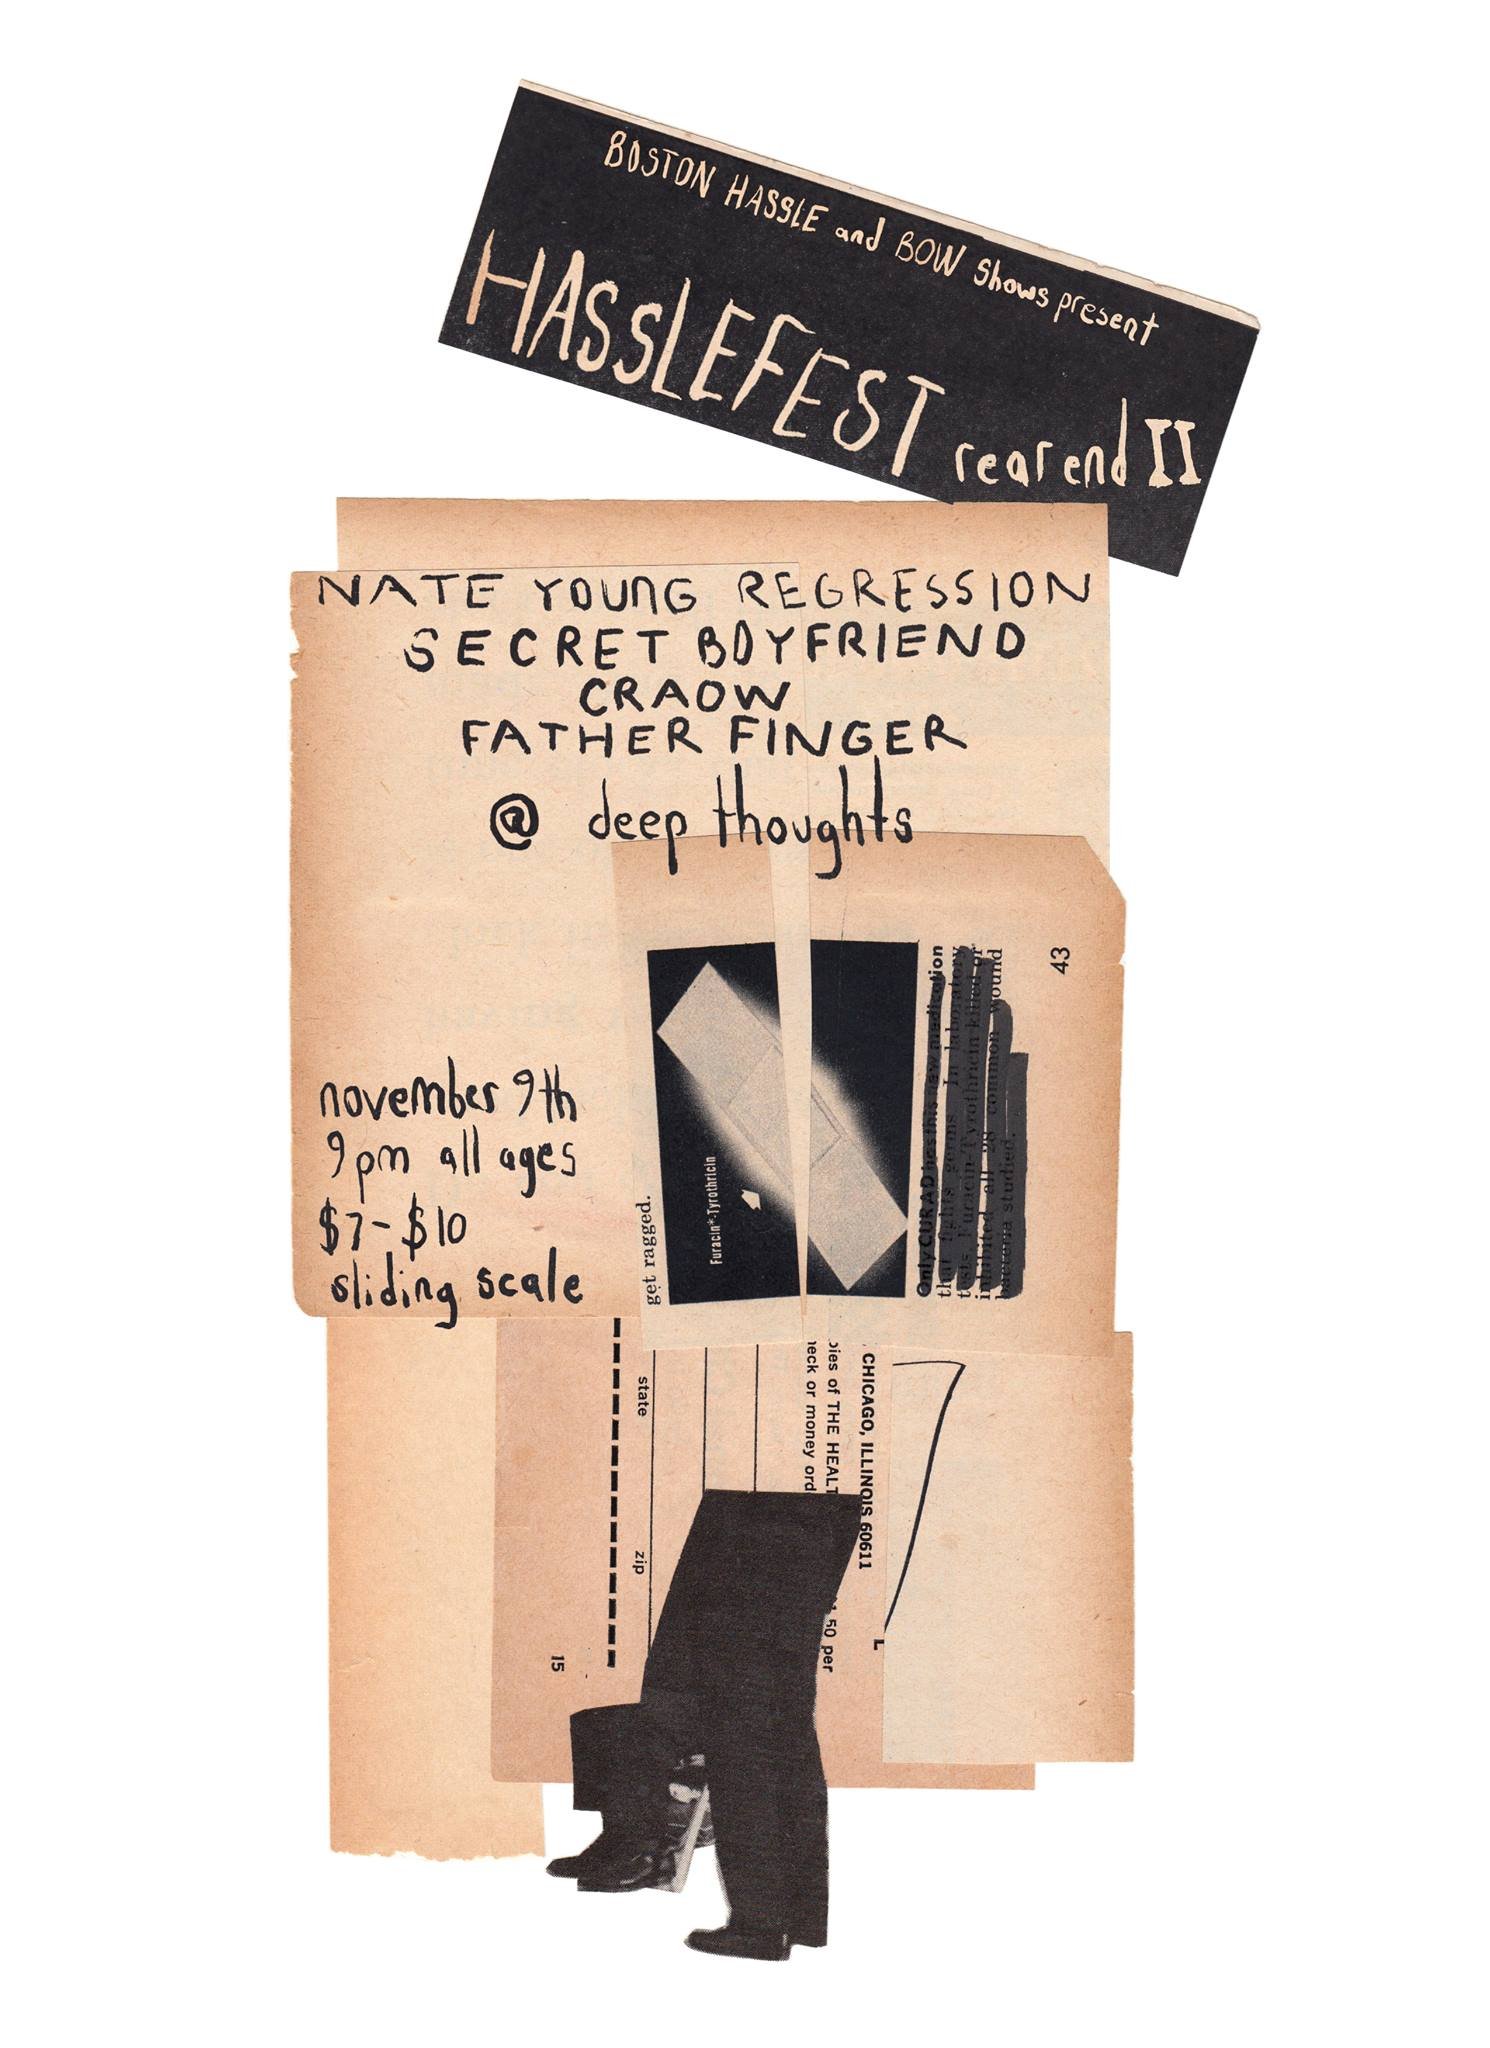 BOSTON HASSLE and BOW Shows present
HASSLEFEST rear end II
NATE YOUNG REGRESSION
SECRET BOYFRIEND
CRAOW
FATHER FINGER
@ deep thoughts
november 9th
9pm all ages
$7-$10
sliding scale
get ragged.
Furacin*-Tyrothricin
Only CURAD has this new medication
that fights germs. In laboratory
tests, Furacin-Tyrothricin killed or
inhibited all 28 common wound
bacteria studied.
43
, CHICAGO, ILLINOIS 60611
pies of THE HEALT
heck or money ord
50 per
state
zip
15
L